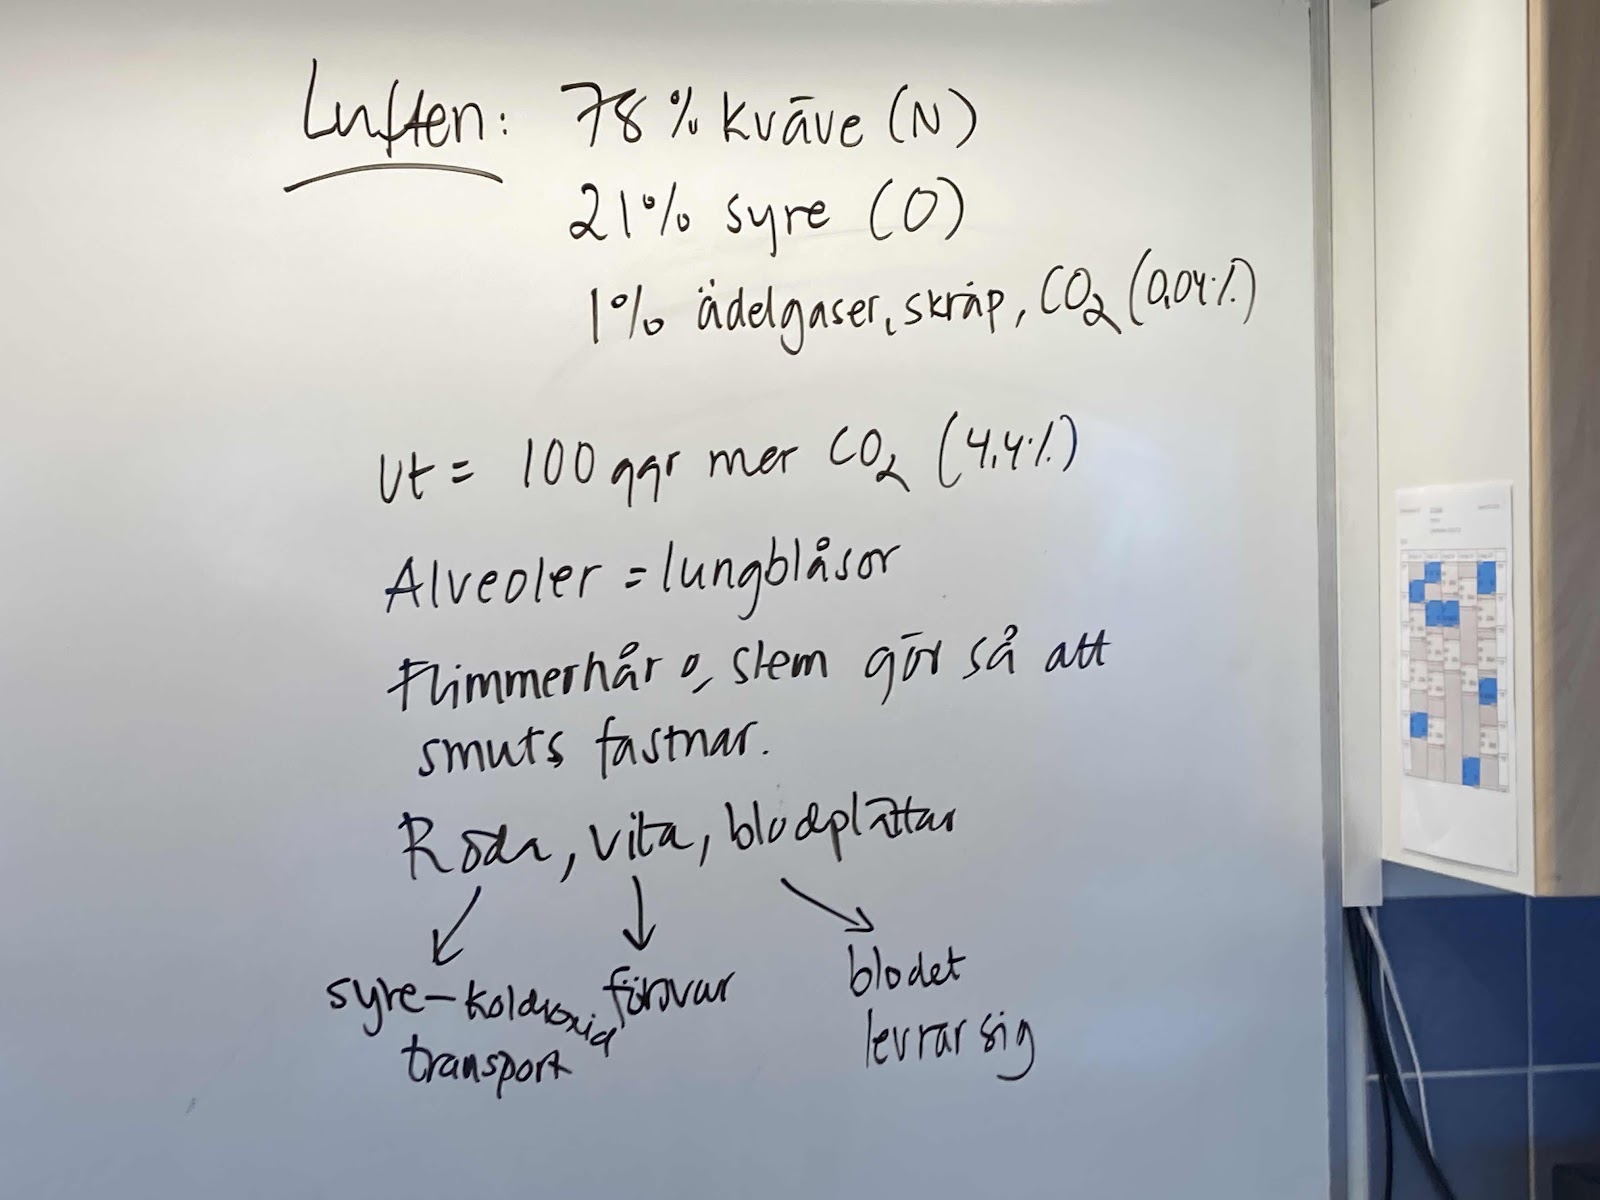 Luften: 78% kväve (N)
21% syre (O)
1% ädelgaser, skräp, CO2 (0,04%)
Ut = 100 ggr mer CO2 (4,4%)
Alveoler = lungblåsor
Flimmerhår o, slem gör så att
smuts fastnar.
Röda, vita, blodplättar
syre-koldioxid försvar blodet
transport levrar sig